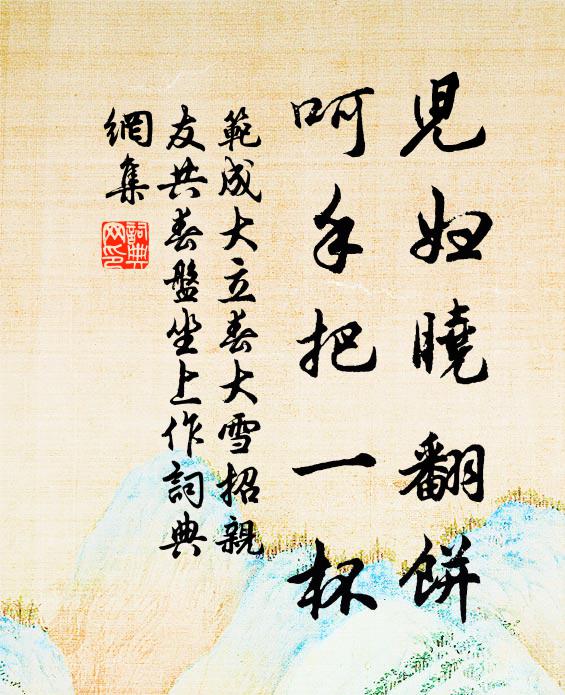 兒婦曉翻餅
呵手把一杯
範成大立春大雪招親
友共春盤坐上作詞典
網集
詞典
网印